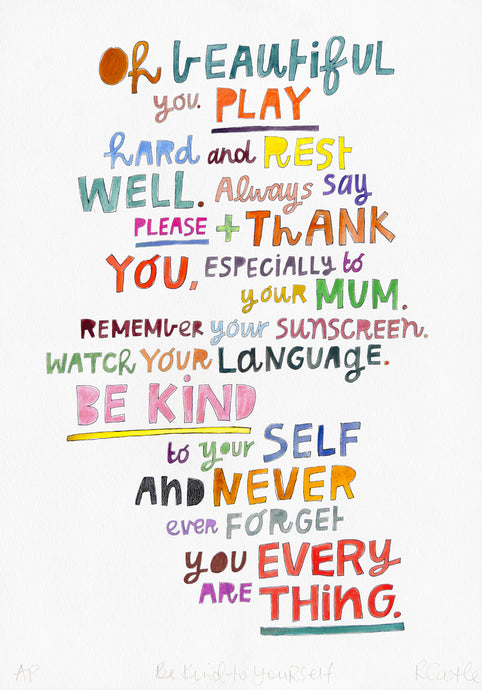 Oh bEAUtifUL
you. PLAY
hARD and REST
WELL. Always SAY
PLEASE + ThANK
YOU, ESPECIALLY to
your MUM.
REMEMbER your SUNSCREEN.
WATCh YOUR LANGUAGE.
BE KiND
to your SELF
AND NEVER
ever FORGET
you EVERY
ARE ThiNG.
AP Be Kind to Yourself RCastle